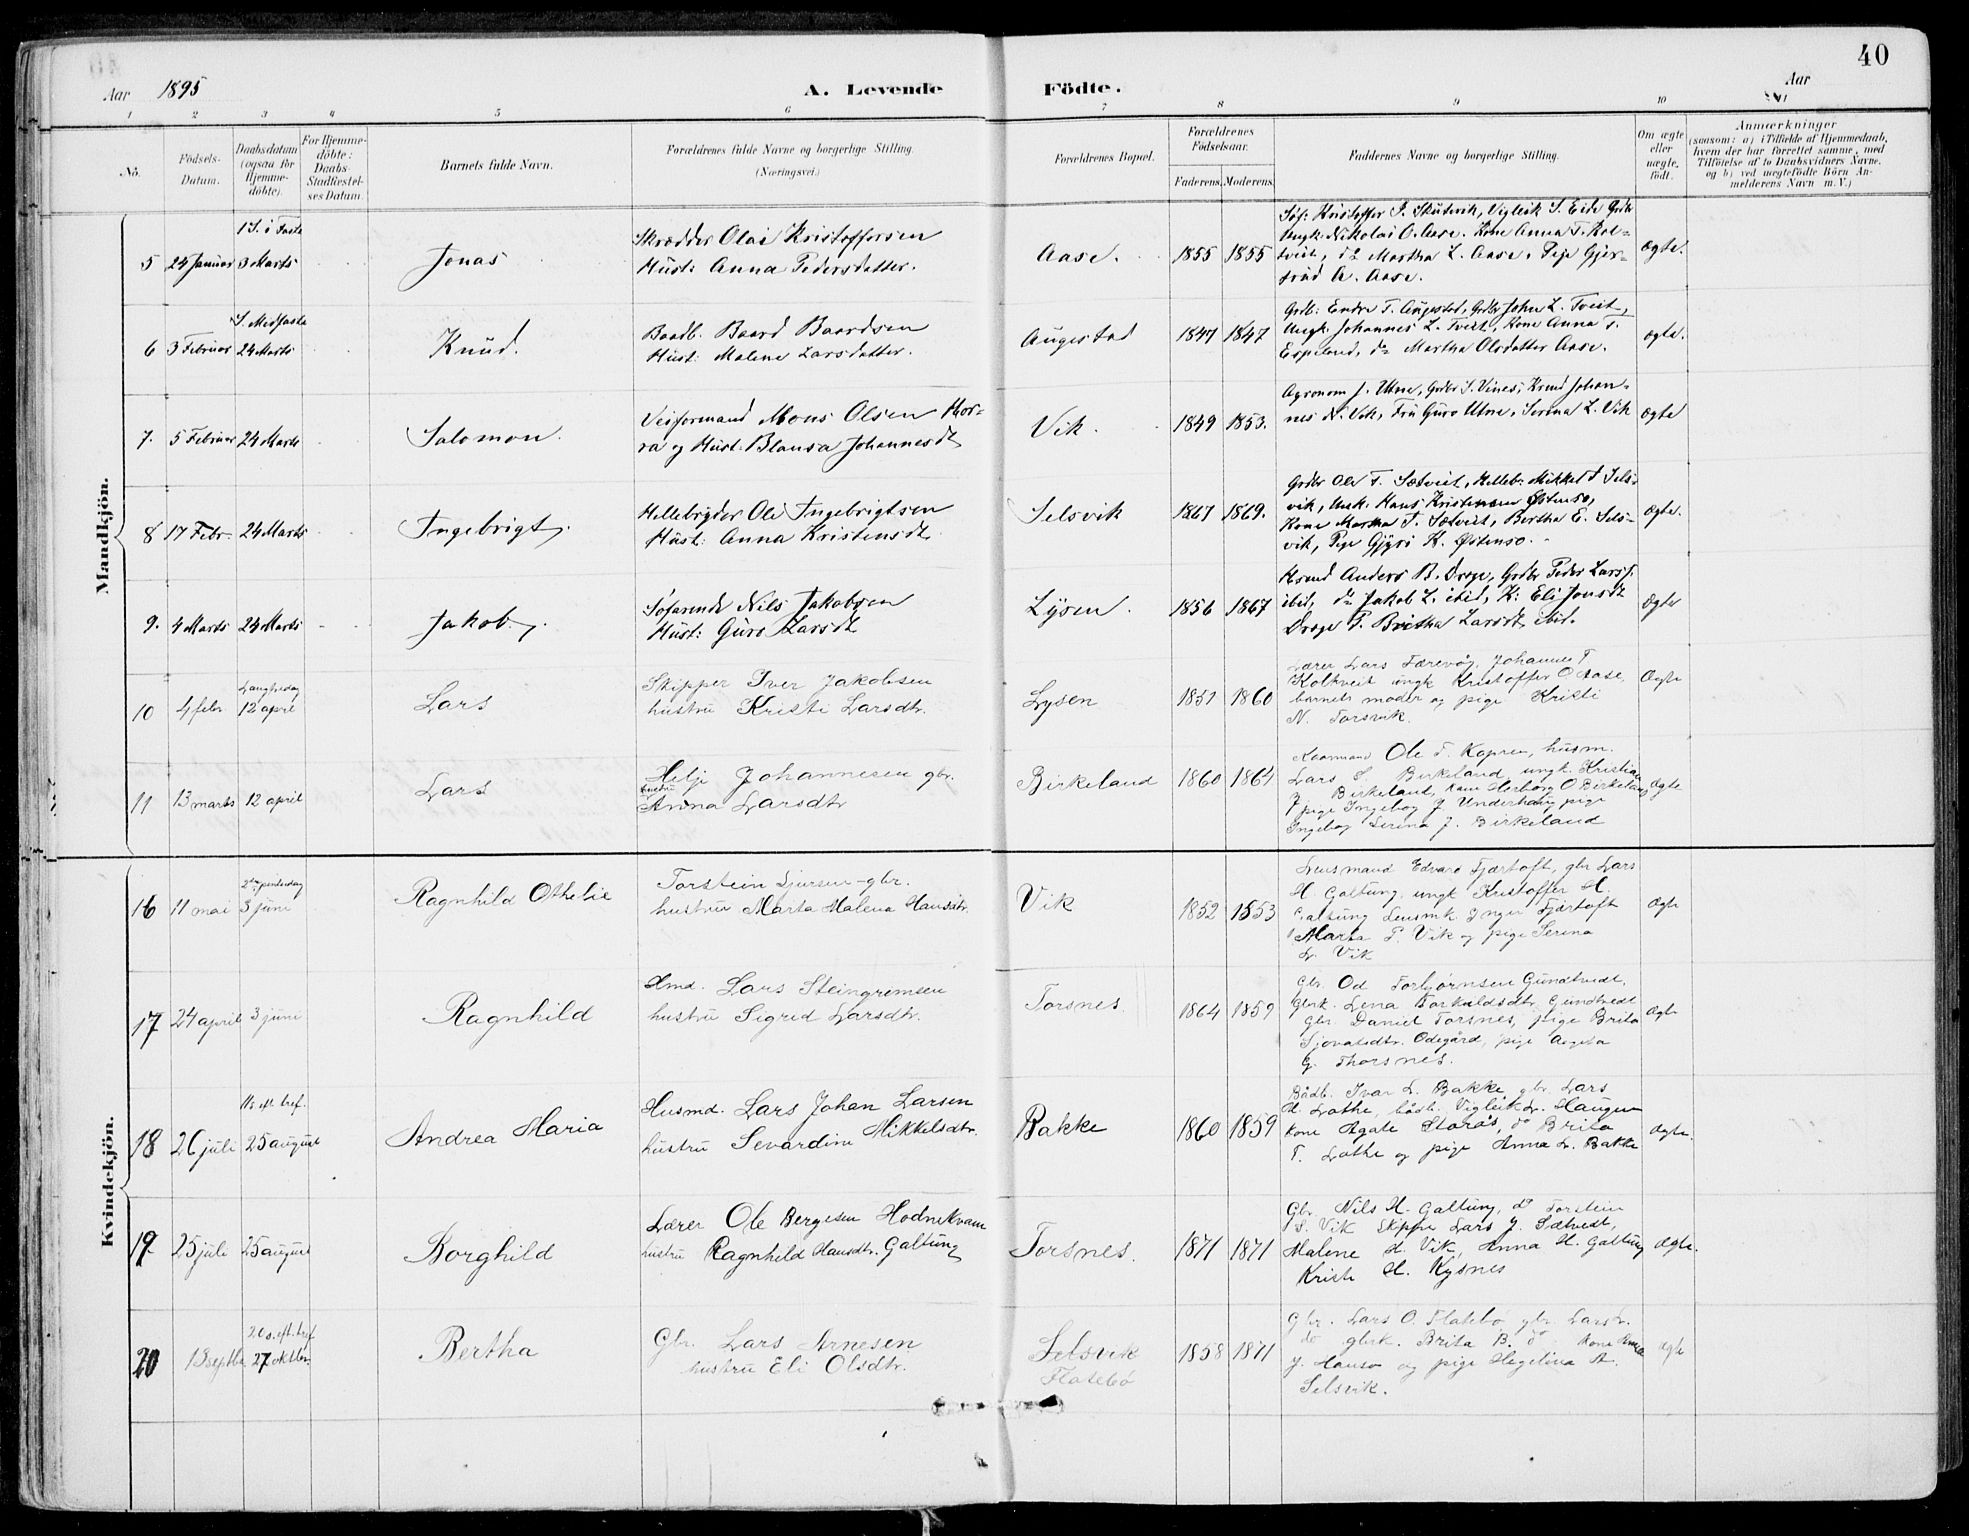 40
Aar 1895
A. Levende Födte.
Aar
1 2 3 4 5 6 7 8 9 10 11
No.
Födsels-
Datum.
Daabsdatum
(ogsaa för
Hjemme-
döbte).
For Hjemme-
döbte:
Daabs-
Stadfæstel-
ses Datum.
Barnets fulde Navn.
Forældrenes fulde Navne og borgerlige Stilling.
(Næringsvei.)
Forældrenes Bopæl.
Forældrenes
Födselsaar.
Faderens. Moderens.
Faddernes Navne og borgerlige Stilling.
Om ægte
eller
uægte
födt.
Anmærkninger
(saasom: a) i Tilfælde af Hjemmedaab,
hvem der har forrettet samme, med
Tilföielse af to Daabsvidners Navne.
og b) ved uægtefödte Börn An-
melderens Navn m. V.)
Mandkjön.
5 24 Januar
1 S. i Faste
3 Marts
Jonas
Skrædder Olai Kristoffersen
Hust: Anna Pedersdatter.
Aase.
1855 1855
Søf: Kristoffer P. Skutevik, Vigleik S. Eide Grdbr
Ungk. Nikolai O. Aase. Kone Anna T. Kol-
tveit, do Martha L. Aase, Pige Gjer-
trud A. Aase.
ægte.
6 3 Februar
S. Midfaste
24 Marts
Knud.
Baadb. Baard Baardsen
Hust: Malene Larsdatter.
Augestad
1847 1847
Grdb: Endre T. Augestad, Grdbr John L. Tveit,
Ungk. Johannes L. Tveit, Kone Anna T.
Espeland, do Martha Olsdatter Aase.
ægte.
7. 5 Februar 24 Marts
Salomon.
Veiformand Mons Olsen Hor-
ra og Hust. Blansa Johannesdt
Vik.
1849 1853.
Agronom J. Utne, Grdbr S. Vines, Knud Johan-
nes N. Vik, Fru Guro Utne, Serina L. Vik
ægte
8 17 Febr. 24 Marts
Ingebrigt.
Hellebryder Ole Ingebrigtsen
Hust: Anna Kristensdt
Selsvik
1867 1869.
Grdbr Ole T. Sætveit, Hellebr. Mikkel I Sels-
vik, Unk. Hans Kristensen Østensø,
Kone Martha T. Sætveit, Bertha E. Sels-
vik, Pige Gjyri K. Østensø.
ægte.
9. 4 Marts 24 Marts
Jakob.
Søfarende Nils Jakobsen
Hust: Guro Larsdt
Lysen.
1856 1867
Hsmd Anders B. Drage, Grdbr Peder Larss.
ibid, do Jakob L. ibid, K: Eli Jonsdt
Drage P. Britha Larsdt ibid.
Ægte
10 4 febr.
Langfredag
12 april
Lars
Skipper Iver Jakobsen
hustru Kristi Larsdtr.
Lysen
1851 1860
Lærer Lars Tærevåg, Johannes T
Kolkveit ungk Kristoffer O Aase,
barnets moder og pige Kristi
N. Torsvik.
Ægte
11 13 marts 12 april
Lars
Helje Johannesen gbr.
hustru
Anna Larsdtr
Birkeland
1860 1864
Ole T. Kapren, husm.
Lars S. Birkeland, ungk. Kristian
J Birkeland, kone Herborg O Birkeland
pige Ingebog J. Underhaug pige
Ingebog Serina J. Birkeland
Ægte
Kvindekjön.
16 11 mai
2den pintsedag
3 juni
Ragnhild Othelie
Torstein Sjursen gbr.
hustru Marta Malena Hansdtr.
Vik
1852 1853
Lensmand Edvard Fjærtoft, gbr Lars
H Galtung, ungk Kristoffer H.
Galtung Lensmk Inger Fjærtoft
Marta P. Vik og pige Serina
L. Vik
Ægte
17 24 april 3 juni
Ragnhild
Hmd. Lars Steingremsen
hustru Sigrid Larsdtr.
Torsnes.
1864 1859
Gbr. Od Torbjørnsen Gundtvedt,
Gbrk. Lena Torkaldsdtr. Gundtvedt
Gbr. Daniel Torsnes, pige Brita
Sjovatsdtr. Odegård, pige Augeta
G. Thorsnes.
Ægte
18 26 juli
11s eft. tref.
25 august
Andrea Maria
Husmd. Lars Johan Larsen
hustru Sevardine Mikkelsdtr.
Bakke
1860 1859
Bådb. Ivar L. Bakke, gbr. Lars
H. Lothe, bådb. Vigleik L. Haugen
kone Agate Storås, do Brita
T. Lothe og pige Anna L. Bakke
Ægte.
19. 25 juli 25 august
Borghild
Lærer Ole Bergesen Hodnekvam
hustru Ragnhild Hansdtr. Galtung
Torsnes.
1871 1871
Gbr. Nils H. Galtung, do Torstein
S. Vik Skippr Lars J. Sætvedt,
Malene H. Vik, Anna H. Galtung
Kriste H. Kysnes
Ægte.
20 13 septbr
20 s. eft. tref
27 oktbr.
Bertha
Gbr. Lars Arnesen
hustru Eli Olsdtr.
Selsvik
Flatebø
1858 1871
Gbr. Lars O. Flatebø gbr. Lars L.
do gbrk. Brita B. do kone Anna
J. Hansø og pige Hegelina A.
Selsvik.
Ægte